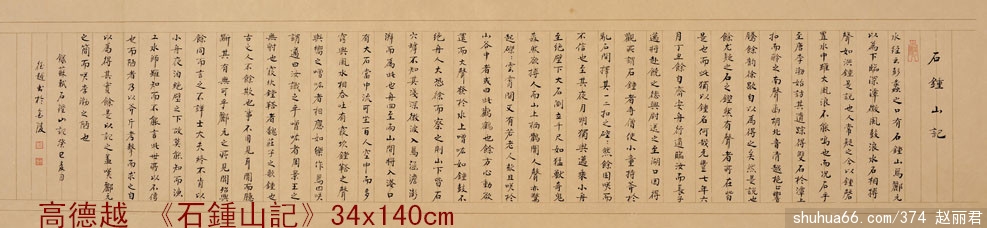 石鍾山記
水經云彭蠡之口有石鍾山焉酈元
以為下臨深潭微風鼓浪水石相搏
聲如洪鍾是說也人常疑之今以鍾磬
置水中雖大風浪不能鳴也而況石乎
至唐李渤始訪其遺蹤得雙石於潭上
扣而聆之南聲函胡北音清越枹止響
騰餘韵徐歇自以為得之矣然是說也
餘尤疑之石之鏗然有聲者所在皆
是也而此獨以鍾名何哉元豐七年六
月丁丑餘自齊安舟行適臨汝而長子
邁將赴饒之德興尉送之至湖口因得
觀所謂石鍾者寺僧使小童持斧於
亂石間擇其一二扣之硿硿然餘固笑而
不信也至莫夜月明獨與邁乘小舟
至絕壁下大石側立千尺如猛獸奇鬼
森然欲搏人而山上栖鶻聞人聲亦驚
起磔磔雲霄間又有若老人欬且笑於
山谷中者或曰此鸛鶴也餘方心動欲
還而大聲發於水上噌吰如鍾鼓不
絕舟人大恐徐而察之則山下皆石
穴罅不知其淺深微波入焉涵澹澎
湃而為此也舟迴至兩山間將入港口
有大石當中流可坐百人空中而多
竅與風水相吞吐有窾坎鏜鞳之聲
與嚮之噌吰者相應如樂作焉因笑
謂邁曰汝識之乎噌吰者周景王之
無射也窾坎鏜鞳者魏莊子之歌鍾也
古之人不餘欺也事不目見耳聞而臆
斷其有無可乎酈元之所見聞殆與
餘同而言之不詳士大夫終不肯以
小舟夜泊絕壁之下故莫能知而漁
工水師雖知而不能言此世所以不傳
也而陋者乃以斧斤考擊而求之自
以為得其實餘是以記之蓋嘆酈元
之簡而笑李渤之陋也
錄蘇軾石鍾山記癸巳夏日
德越書於金陵
高德越 《石鍾山記》34x140cm
shuhua66.com/374 赵丽君